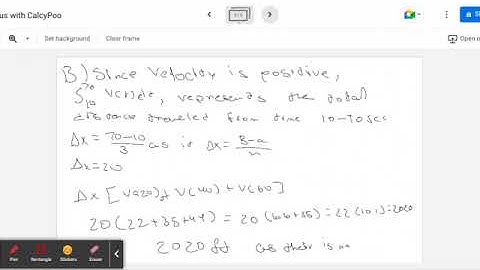 us with CalcyPoo
Set background
Clear frame
B) Since Velocity is positive,
∫₁₀⁷⁰ v(t)dt, represents the total
distance traveled from time 10-70sec
Δx = 70-10/3 as is Δx = B-a/n
Δx=20
Δx [v(20)+ v(40) + v(60)]
20(22+35+44) = 20(66+35) = 22(101)=2020
2020ft as their is
Pen
Rectangle
Stickers
Eraser